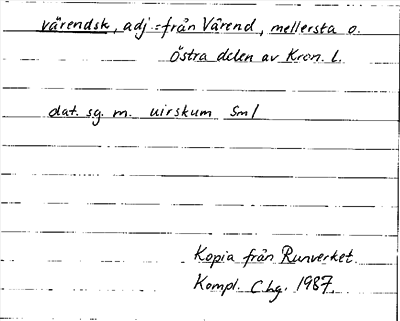 värendsk, adj. = från Värend, mellersta o.
östra delen av Kron. l.
dat. sg. m. uirskum Sm1
Kopia från Runverket.
Kompl. Chg. 1987.